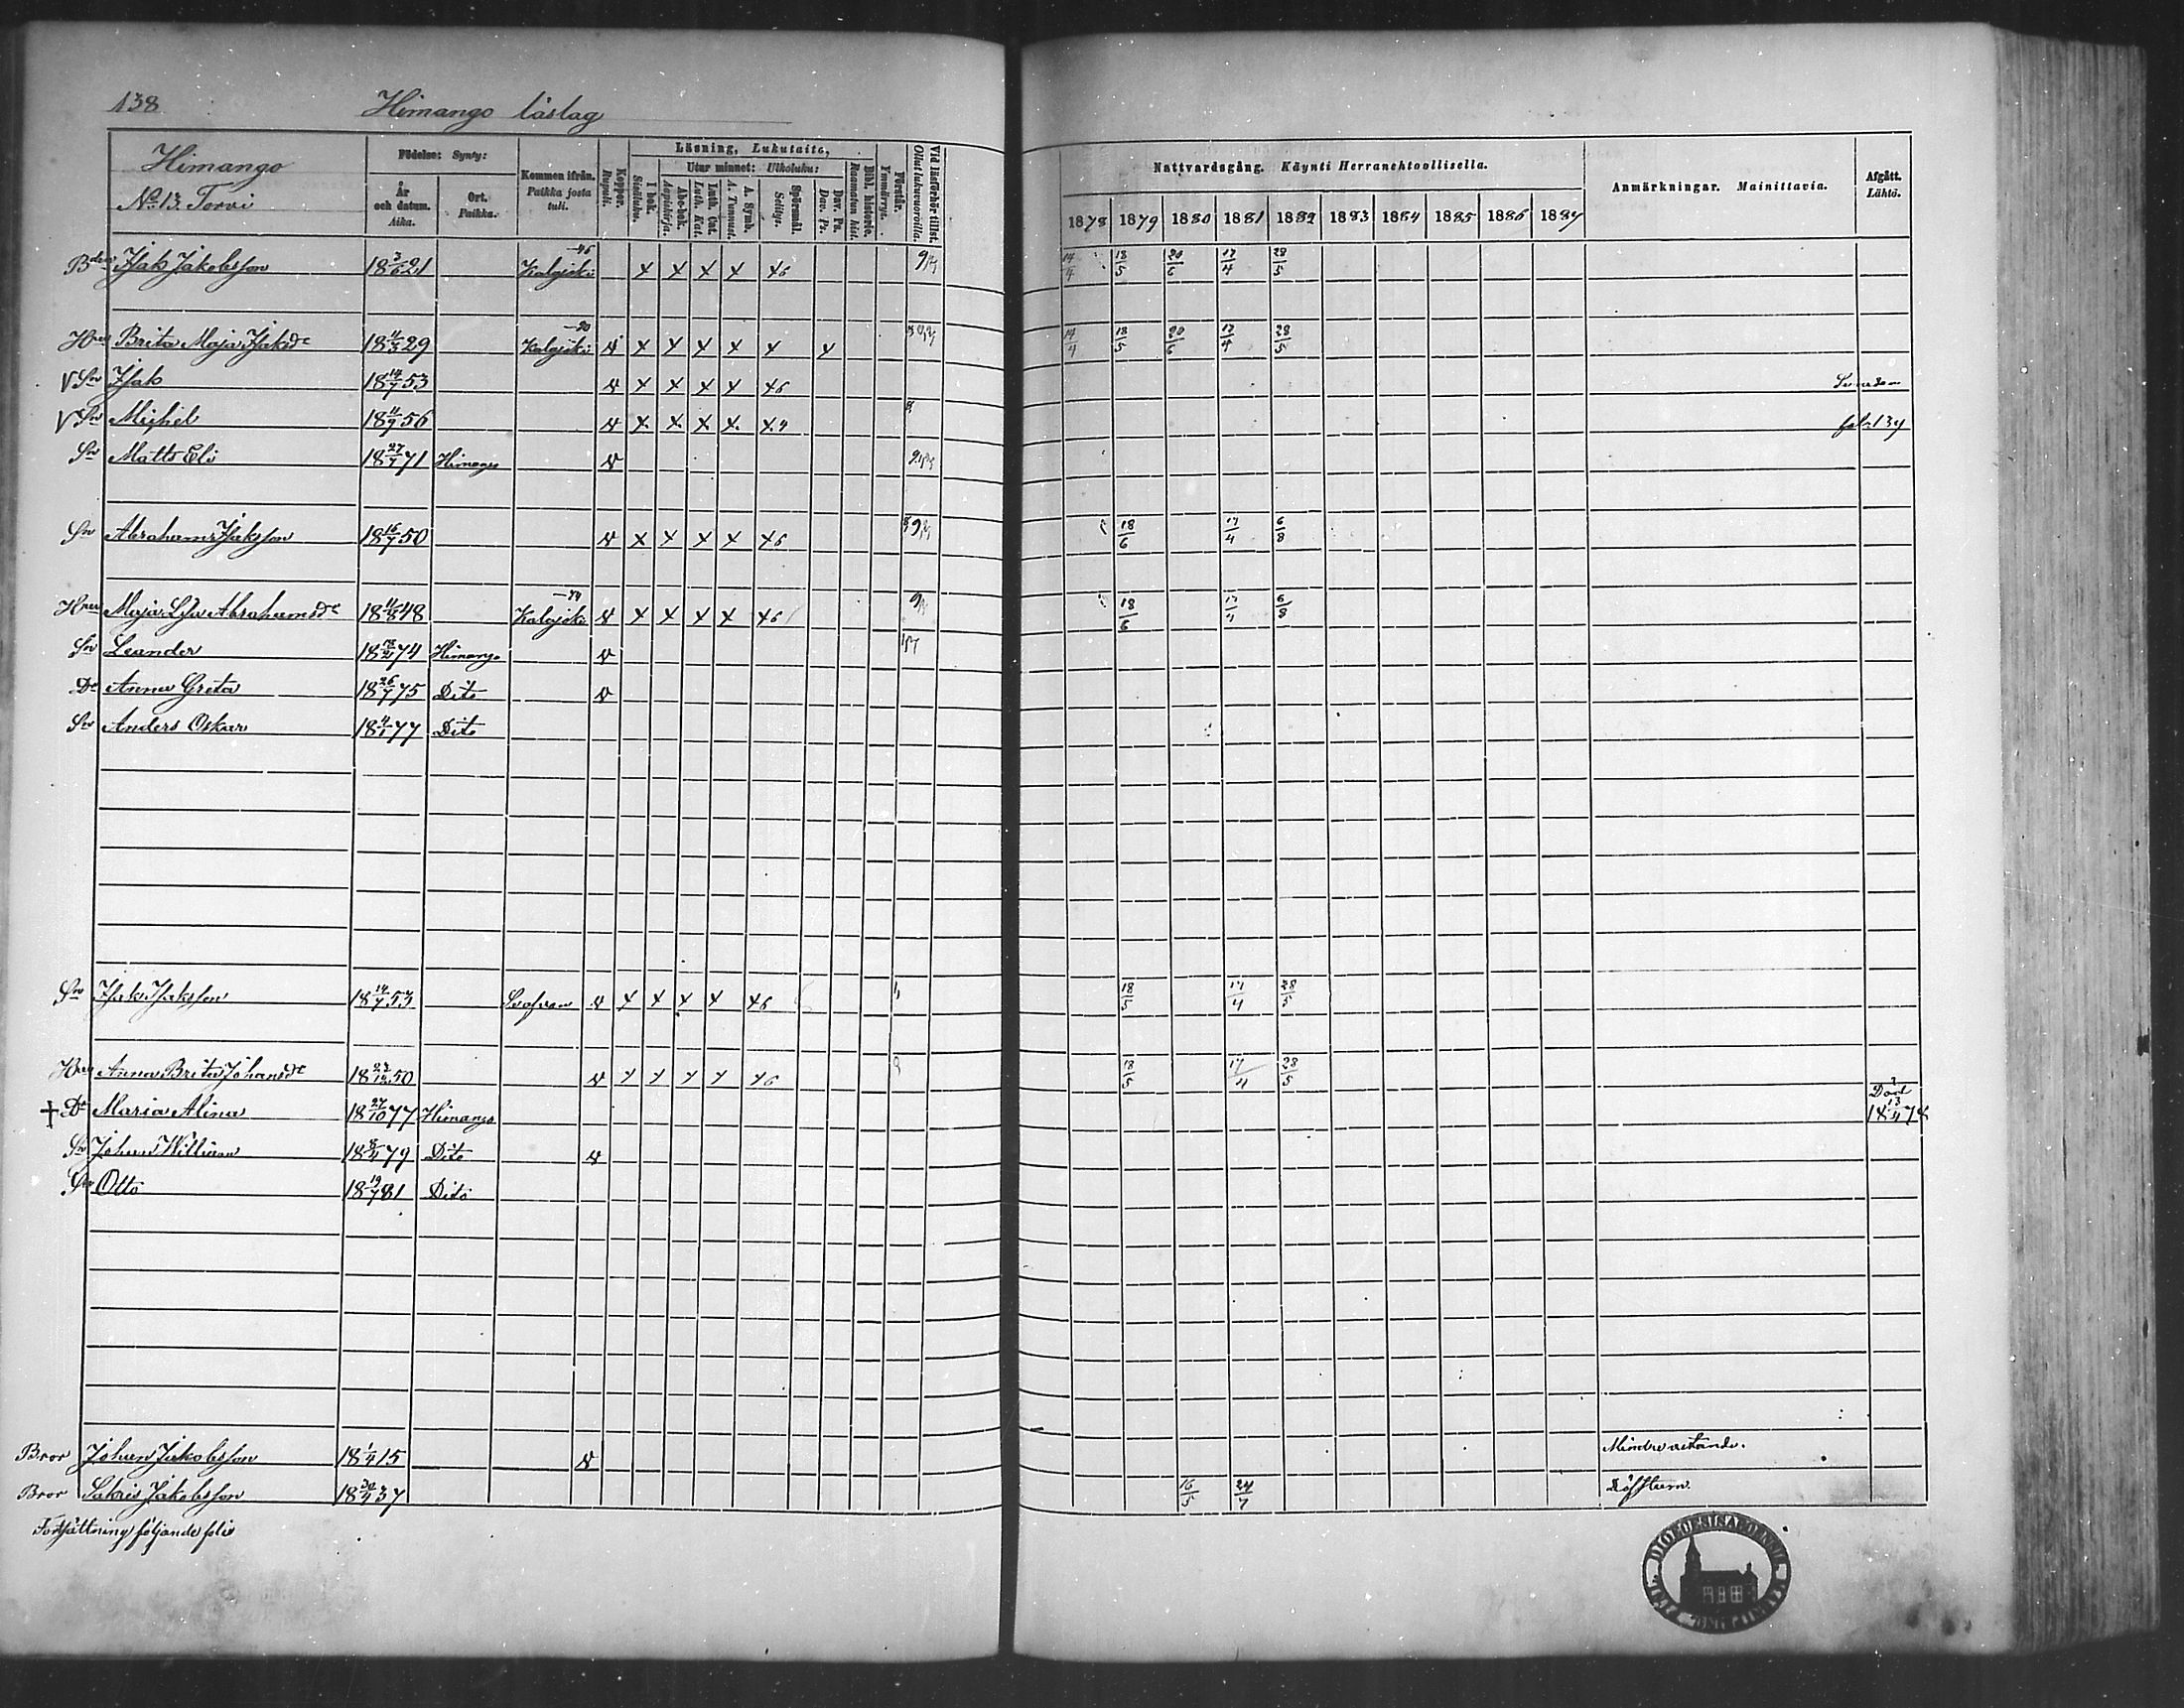 138 Himango läslag
Himango
No 13. Torvi
Födelse: Synty:
År och datum. Aika.
Ort. Paikka.
Kommen ifrån. Paikka josta tuli.
Koppor. Rupuli.
Läsning, Lukutaito,
I bok. Sisäluku.
Utur minnet: Ulkoluku:
Abc-bok. Aapiskirja.
Luth. Cat. Luth. Kat.
A. Symb. A. Tunnust.
Spörsmål. Selitys.
Dav. Ps. Dav. Ps.
Bibl. historie. Raamatun hist.
Förstår. Ymmärrys.
Vid läsförhör tillst. Ollut lukuvuorolla.
Nattvardsgång. Käynti Herranehtoollisella.
1878 1879 1880 1881 1882 1883 1884 1885 1886 1887
Anmärkningar. Mainittavia.
Afgått. Lähtö.
Bden Isak Jakobsson 18 3/6 21 Kalajoki -46 x x x x x6 14/4 18/5 20/6 17/4 28/5
Hru Brita Maja Isaksdr 18 11/3 29 Kalajoki v x x x x x x 14/4 18/5 20/6 17/4 28/5
V Sn Isak 18 14/7 53 v x x x x x6
V Sn Michel 18 11/9 56 v x x x x x4 fol. 139
Sn Matts Eli 18 27/7 71 Himango v
Sn Abraham Isaksson 18 16/7 50 v x x x x x6 18/6 17/4 6/8
Hru Maja Lisa Abrahamsdr 18 11/8 48 Kalajoki v x x x x x6 18/6 17/4 6/8
Sn Leander 74 Himango v
Dr Anna Greta 18 26/7 75 Dito v
Sn Anders Oskar 18 4/1 77 Dito
Sn Isak Isaksson 18 14/7 53 Svofvan v x x x x x6 18/5 17/4 28/5
Hru Anna Brita Johansdr 50 v x x x x x6 18/5 17/4 28/5
† Dr Maria Alina 18 27/10 77 Himango Död 18 13/4 78
Sn Johan William 79 Dito v
Sn Otto 18 19/7 81 Dito
Bror Johan Jakobsson 18 1/4 15 v Mindre vetande.
Bror Sakris Jakobsson 18 30/4 37 16/5 24/7 Döfstum
Fortsättning följande folio
DIOECESIS ABOENSIS